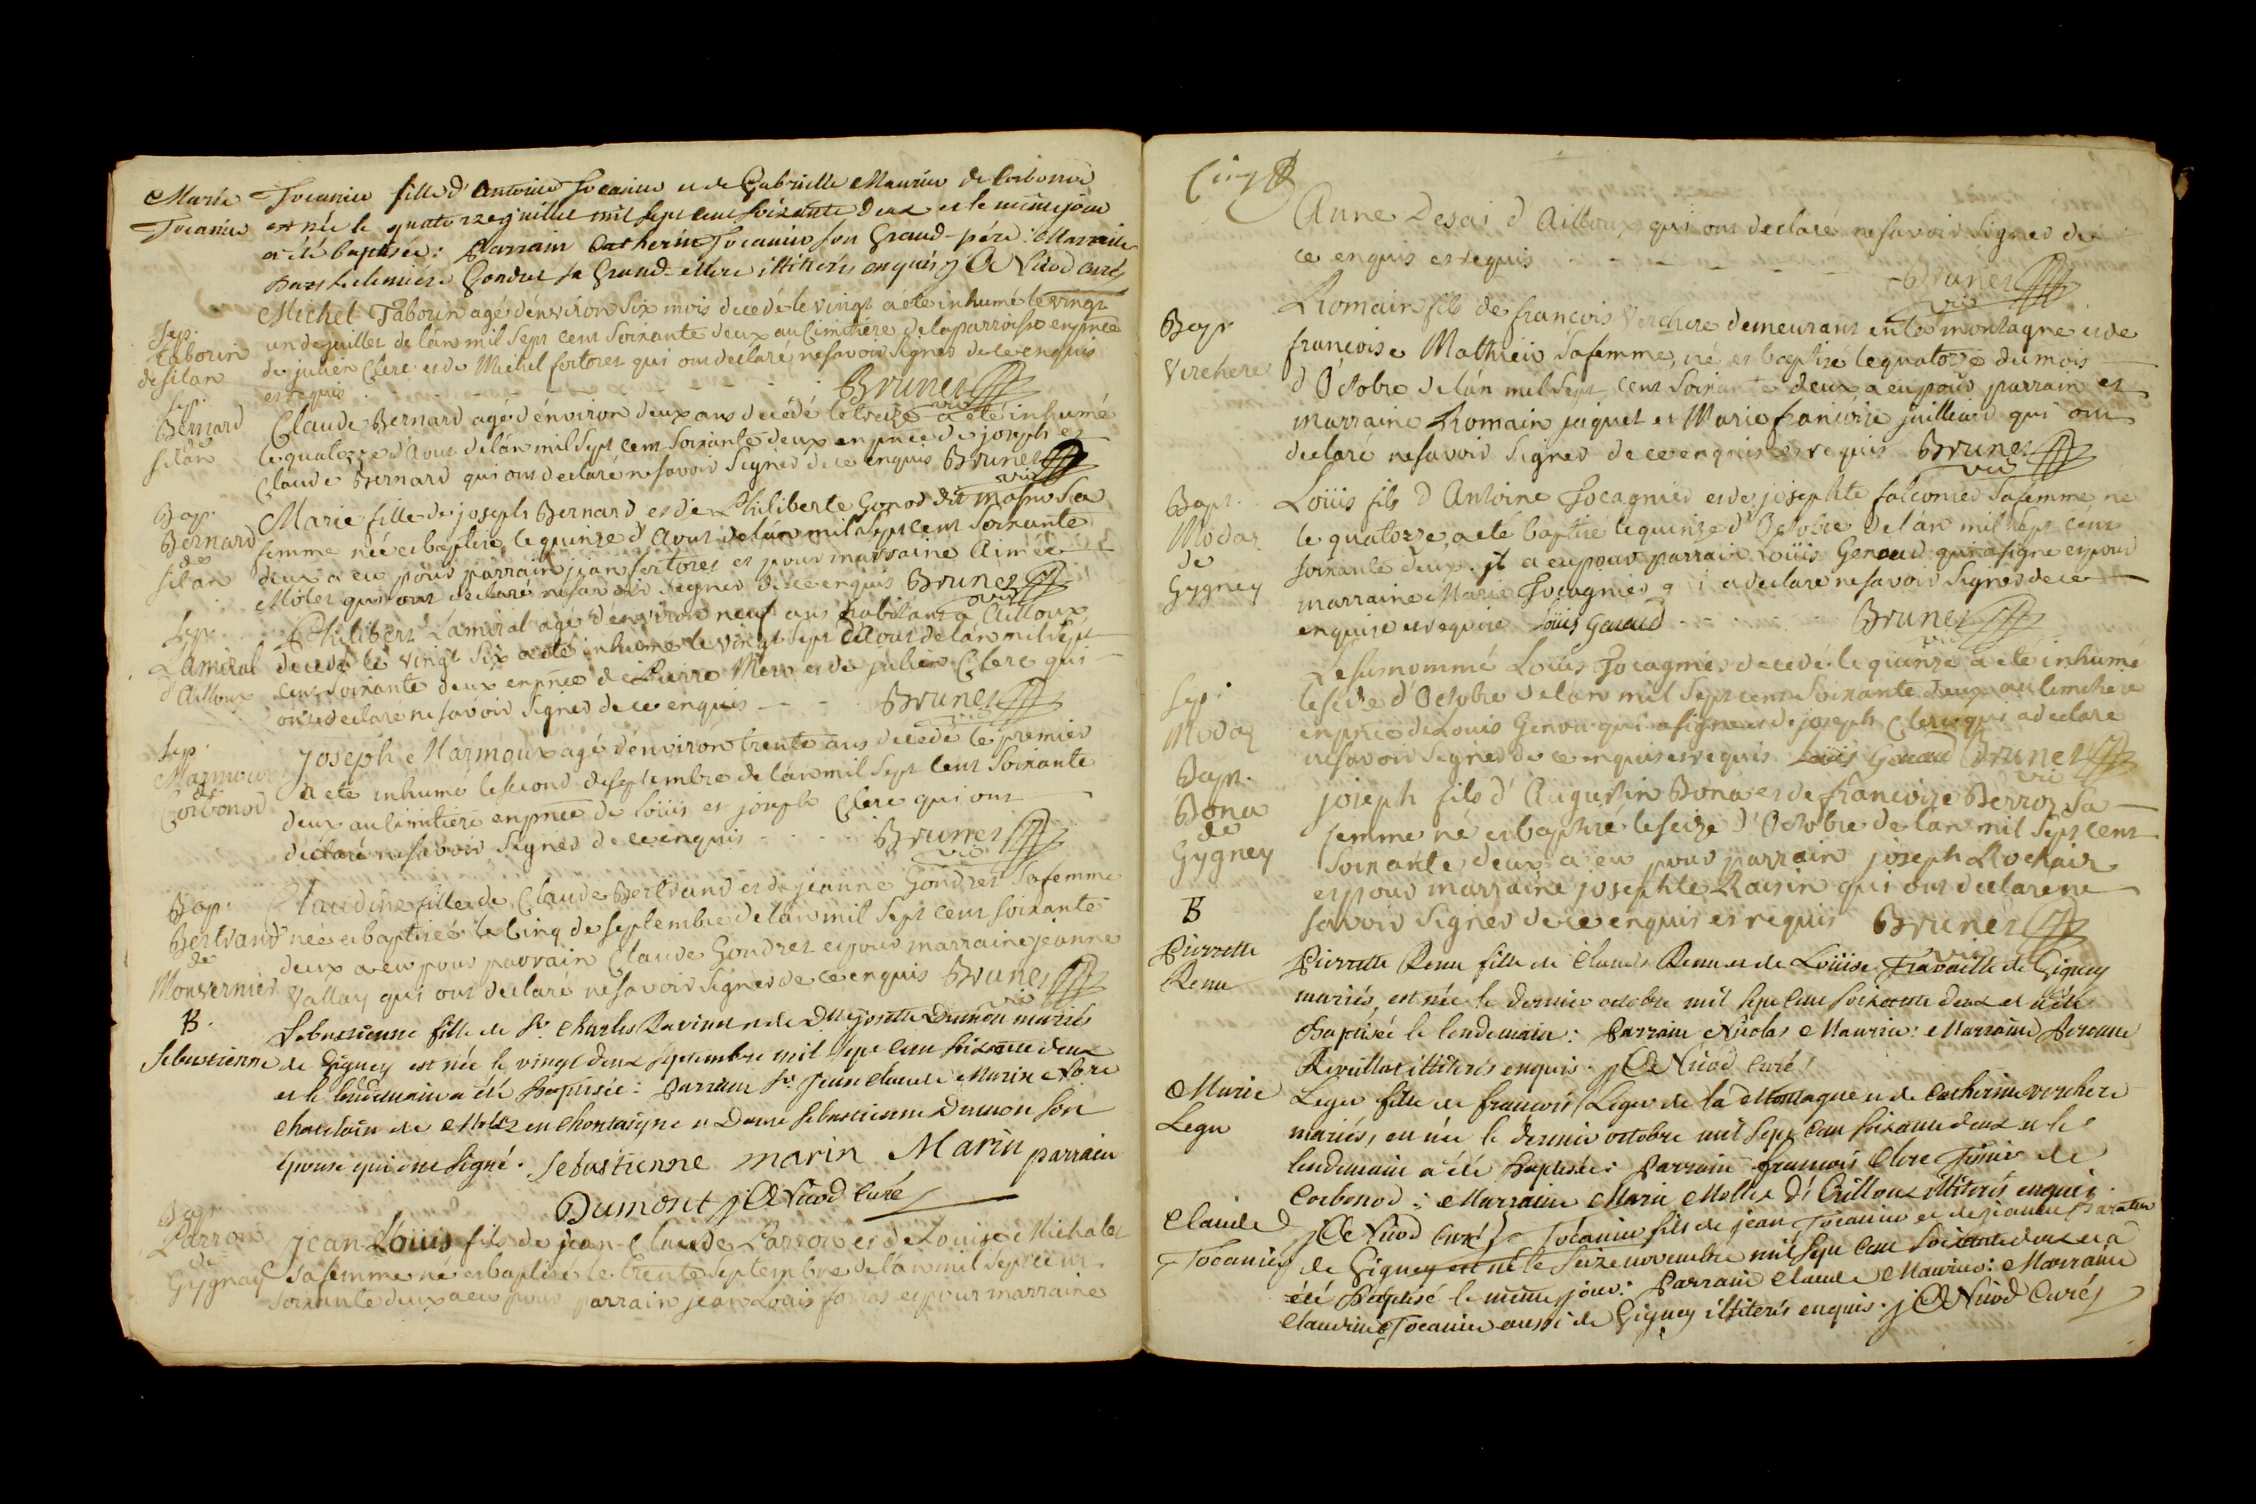 Marie Tocanier fille d'Antoine Tocanier et de Gabrielle Maurin de Corbonod
Tocanier est née le quatorze juillet mil sept cent soixante deux et le même jour
a été baptisée: Parrain Catherin Tocanier son Grand-père: Marraine
Gondret sa Grand-Mère illiterés enquis J O Nicod curé
Michel Taborin agé d'environ six mois decedé le vingt a été inhumé le vingt
Sep. un de juillet de l'an mil sept cent soixante deux au cimitiere de la parroisse en pnce
Taborin de julien Clerc et de Michel fortores qui ont declaré ne savoir signer de ce enquis
de silan et requis Brunet vic
Sep.
Bernard Claude Bernard agé d'environ deux ans decédé le treize a été inhumé
de silan le quatorze d'Aout de l'an mil sept cent soixante deux en pnce de joseph et
Claude Bernard qui ont declaré ne savoir signer de ce enquis Brunet vic
Bap. Marie fille de joseph Bernard et de Philiberte Gonod dit sa
Bernard femme née et baptisée le quinze d'Aout de l'an mil sept cent soixante
de silan deux a eu pour parrain jean fortores et pour marraine Aimée
Molet qui ont declaré ne savoir signer de ce enquis Brunet vic
Sep. Philibert Lamiral agé d'environ neuf ans habitant a Ailloux
Lamiral decedé le vingt six a été inhumé le vingt sept d'Aout de l'an mil sept
d'Ailloux cent soixante deux en pnce de Pierre et de julien Clerc qui
ont declaré ne savoir signer de ce enquis Brunet vic
Sep. joseph Marmoux agé d'environ trente ans decedé le premier
Marmoux a été inhumé le second de septembre de l'an mil sept cent soixante
de Corbonod deux au cimitiere en pnce de Loüis et joseph Clerc qui ont
declaré ne savoir signer de ce enquis Brunet vic
Bap. Claudine fille de Claude Bertrand et de jeanne Gondret sa femme
Bertrand née et baptisée le Cinq de septembre de l'an mil sept cent soixante
de deux a eu pour parrain Claude Gondret et pour marraine jeanne
Monvernier Vallay qui ont declaré ne savoir signer de ce enquis Brunet vic
B. Sebastienne fille de Sr Charles Ravinet et de Dlle josette Dumon mariés
Sebastienne de Gigney est née le vingt deux septembre mil sept cent soixante deux
et le lendemain a été Baptisée: Parrain Sr Jean Claude Marin
Chatelain de en Chontagne et Dame Sebastienne Dumon son
épouse qui ont signé. Sebastienne marin Marin parrain
Dumont J O Nicod Curé
Bap.
Parrou jean-Loüis fils de jean-Claude Parrou et de Louise Michalet
de Gygnay sa femme né et baptisé le trente septembre de l'an mil sept cent
soixante deux a eu pour parrain jean Louis et pour marraine
Cinq
Anne Desai d'Ailloux qui ont declaré ne savoir signer de
ce enquis et requis Brunet vic
Romain fils de francois Verchere demeurant en la montagne et de
Bapt francoise Mathieu sa femme, né et baptisé le quatorze du mois
Verchere d'Octobre de l'an mil sept cent soixante deux a eu pour parrain et
marraine Romain jaquet et Marie francoise juilliard qui ont
declaré ne savoir signer de ce enquis et requis Brunet vic
Bapt. Loüis fils d'Antoine Tocagnier et de josephte falconier sa femme né
Modas le quatorze, a été baptisé le quinze d'Octobre de l'an mil sept cent
de soixante deux. il a eu pour parrain Loüis Genoud qui a signé et pour
Gygney marraine Marie Tocagnier qui a declaré ne savoir signer de ce
enquise et requise Loüis Genoud Brunet vic
Le susnommé Loüis Tocagnier decedé le quinze a été inhumé
Sep. le seize d'Octobre de l'an mil sept cent soixante deux au cimitiere
Modas en pnce de Louis Genou qui a signé et de joseph Clerc qui a declaré
ne savoir signer de ce enquis et requis Loüis Genoud Brunet vic
Bapt. joseph fils d'Augustin Bona et de francoise Berroz sa
Bona femme né et baptisé le seize d'Octobre de l'an mil sept cent
de soixante deux a eu pour parrain joseph Rochaix
Gygney et pour marraine josephte Raisin qui ont declaré ne
savoir signer de ce enquis et requis Brunet vic
B
Pierrette Pierrette Renu fille de Claude Renu et de Loüise Travaille de Gigney
Renu mariés, est née le dernier octobre mil sept cent soixante deux et a été
Baptisée le lendemain: Parrain Nicolas Maurin: Marraine
Revillat illiterés enquis. J O Nicod curé
Marie Leger fille de francois Leger de la Montagne et de Catherine verchere
Leger mariés, est née le dernier octobre mil sept cent soixante deux et le
lendemain a été Baptisée: Parrain francois Clerc de
Corbonod: Marraine Marie Mollet d'Ailloux illiterés enquis.
Claude J O Nicod Curé Tocanier fils de jean Tocanier et de jeanne
Tocanier de Gigney est né le seize novembre mil sept cent soixante deux et a
été Baptisé le même jour: Parrain Claude Maurin: Marraine
Claudine Tocanier aussi de Gigney illiterés enquis. J O Nicod Curé